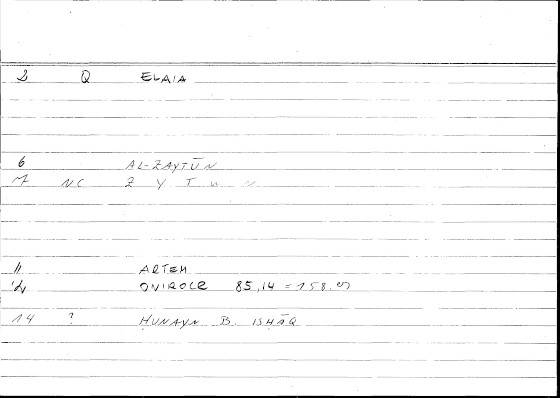 2 Q ELAIA
6 AL-ZAYTŪN
7 NC Z Y T W N
11 ARTEM
12 ONIROCR 85,14 = 158.
14 ? ḤUNAYN B. ISḤĀQ